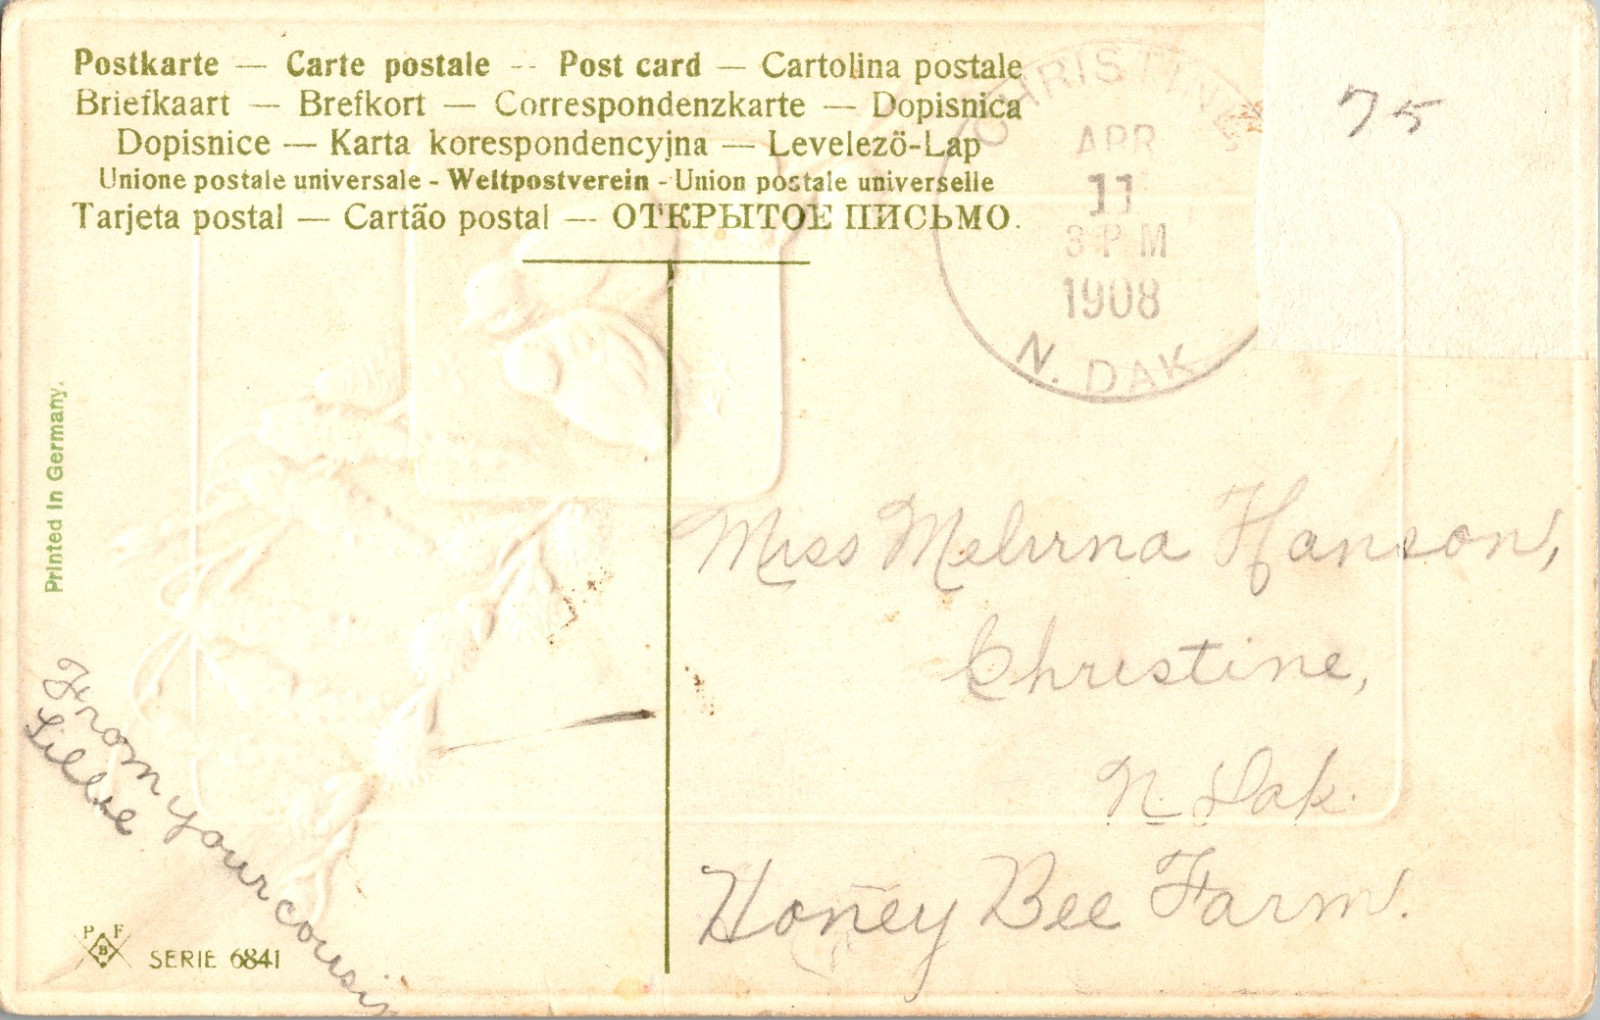 Postkarte — Carte postale -- Post card — Cartolina postale
Briefkaart — Brefkort — Correspondenzkarte — Dopisnica
Dopisnice — Karta korespondencyjna — Levelezö-Lap
Unione postale universale - Weltpostverein - Union postale universelle
Tarjeta postal — Cartão postal — ОТКРЫТОЕ ПИСЬМО.
CHRISTINE
APR
11
3 PM
1908
N. DAK
75
Printed in Germany.
Miss Melvina Hanson,
Christine,
N. Dak.
Honey Bee Farm.
From your cousin
Lillie
P F
B
SERIE 6841